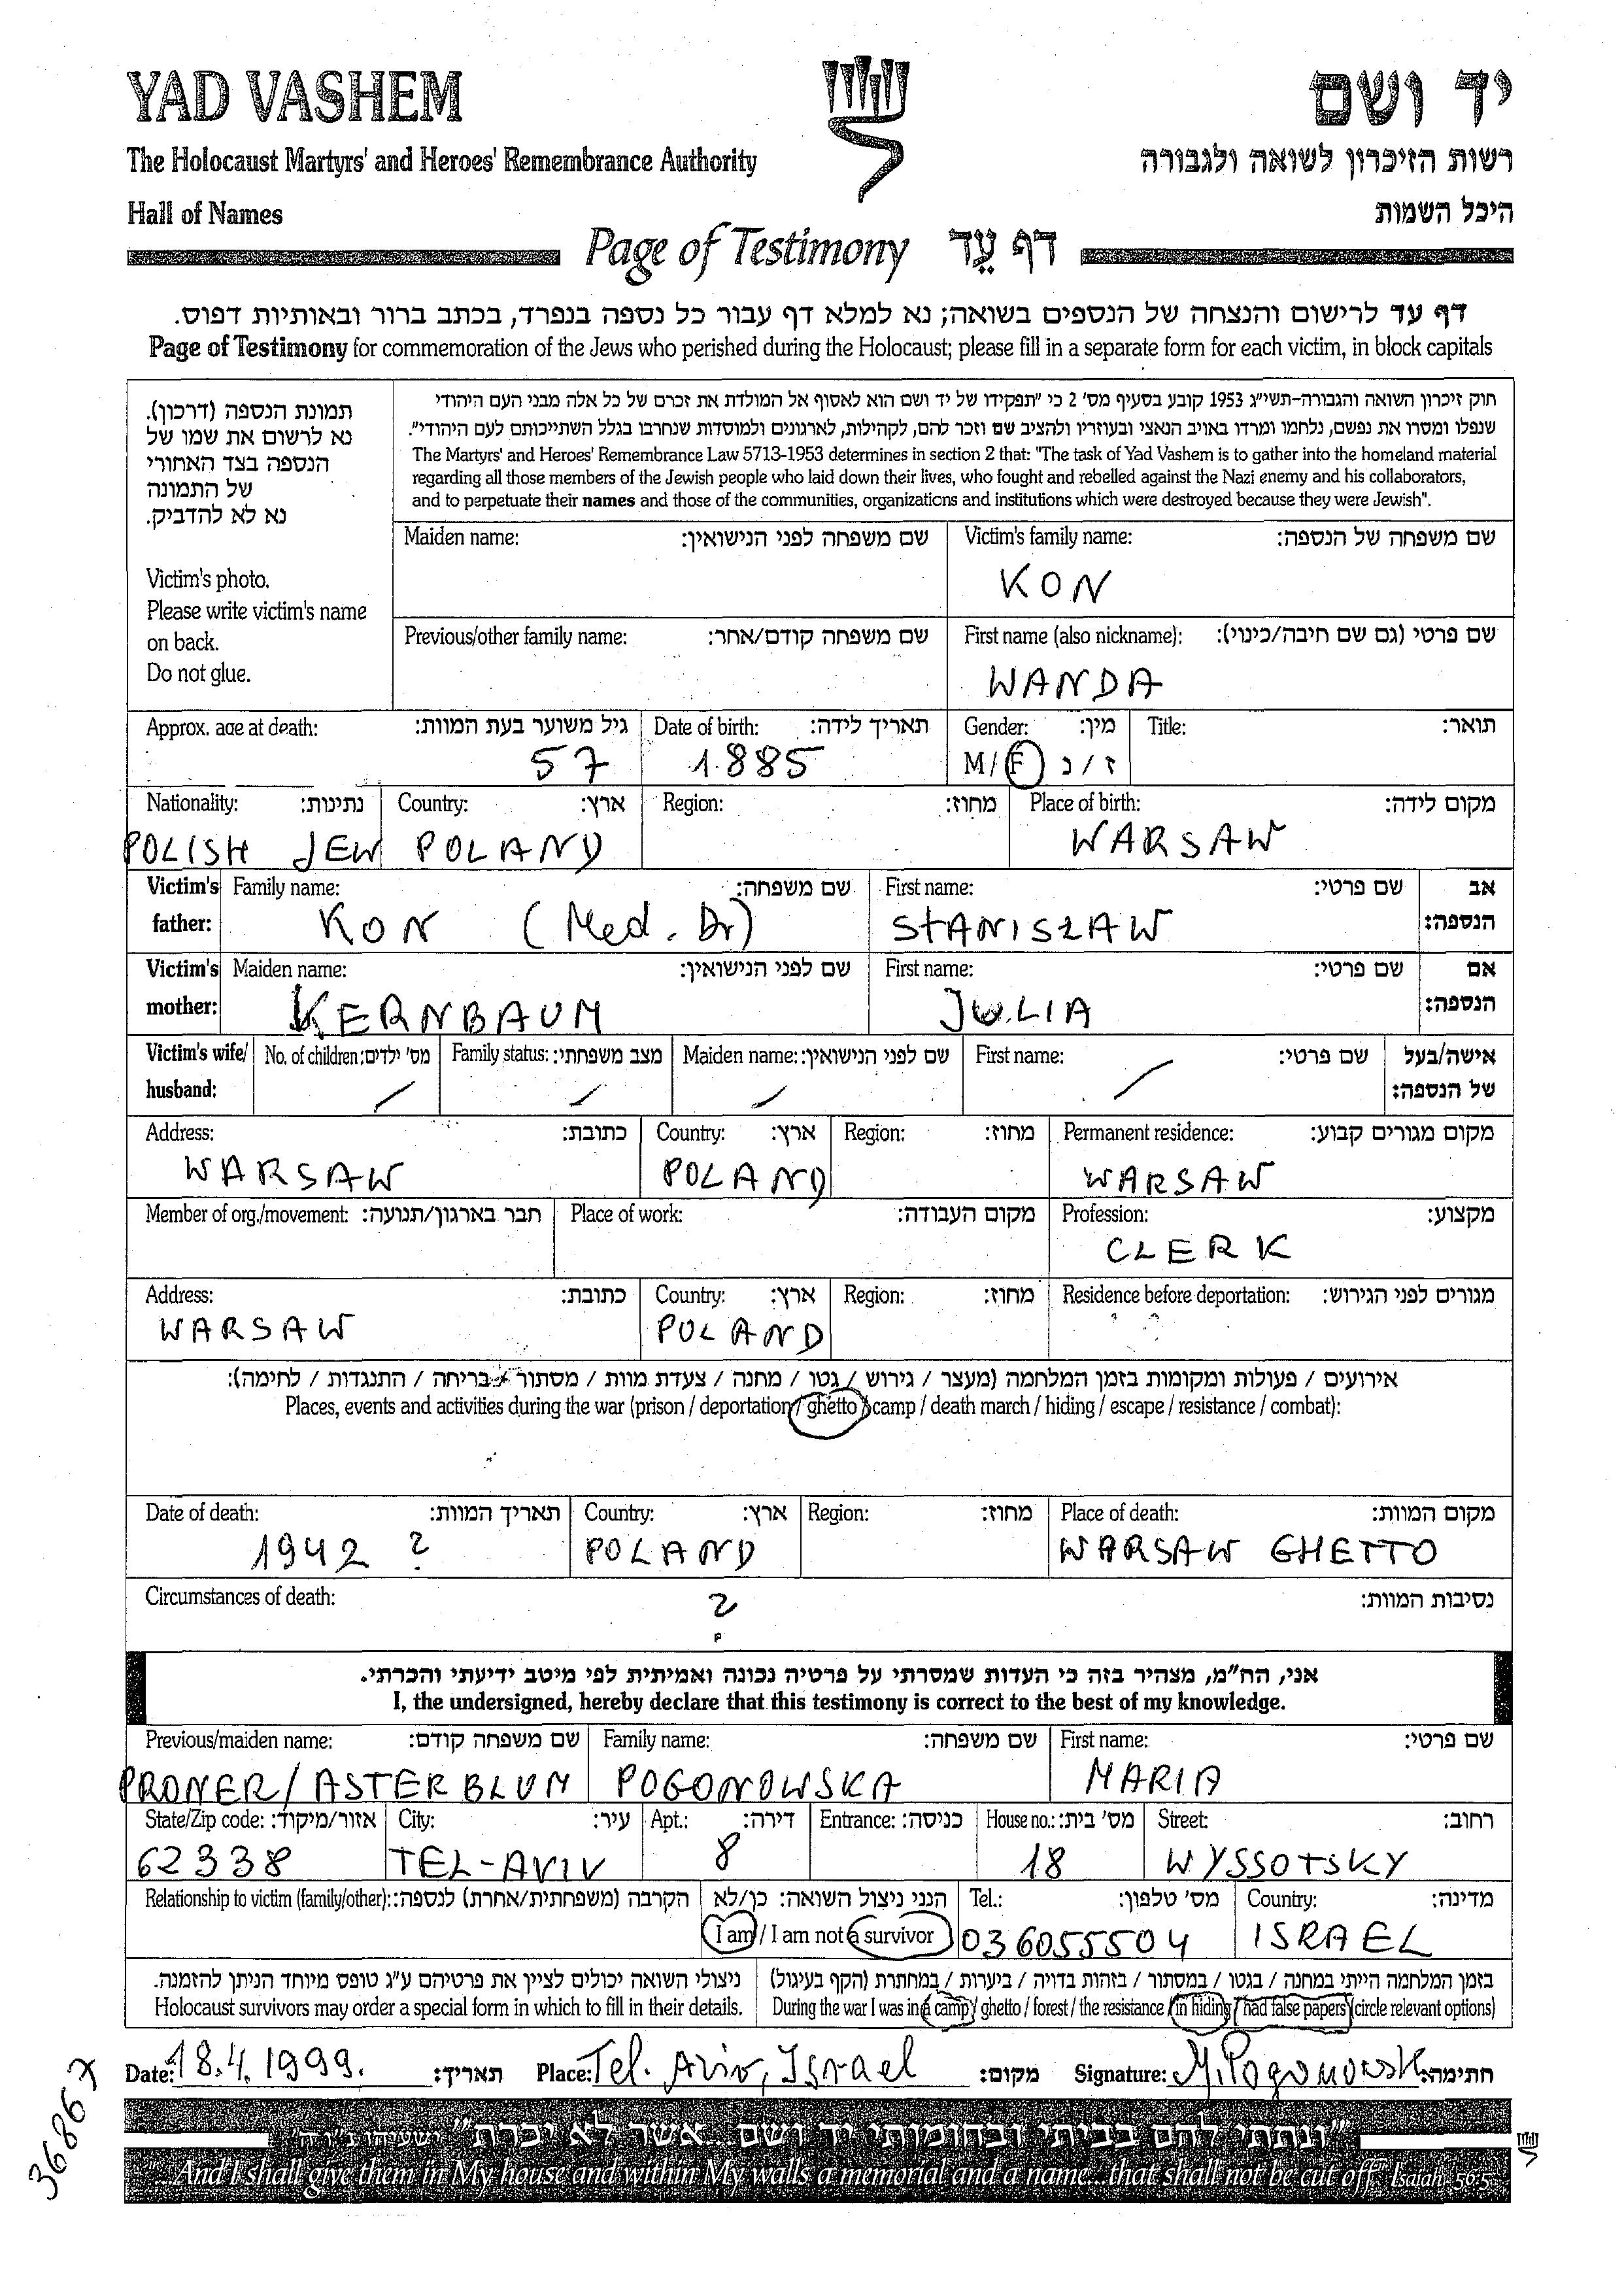 YAD VASHEM
יד ושם
The Holocaust Martyrs' and Heroes' Remembrance Authority
רשות הזיכרון לשואה ולגבורה
Hall of Names
היכל השמות
Page of Testimony דף עֵד
דף עד לרישום והנצחה של הנספים בשואה; נא למלא דף עבור כל נספה בנפרד, בכתב ברור ובאותיות דפוס.
Page of Testimony for commemoration of the Jews who perished during the Holocaust; please fill in a separate form for each victim, in block capitals
תמונת הנספה (דרכון).
נא לרשום את שמו של
הנספה בצד האחורי
של התמונה
נא לא להדביק.
Victim's photo.
Please write victim's name
on back.
Do not glue.
חוק זיכרון השואה והגבורה-תשי"ג 1953 קובע בסעיף מס' 2 כי "תפקידו של יד ושם הוא לאסוף אל המולדת את זכרם של כל אלה מבני העם היהודי
שנפלו ומסרו את נפשם, נלחמו ומרדו באויב הנאצי ובעוזריו ולהציב שם וזכר להם, לקהילות, לארגונים ולמוסדות שנחרבו בגלל השתייכותם לעם היהודי".
The Martyrs' and Heroes' Remembrance Law 5713-1953 determines in section 2 that: "The task of Yad Vashem is to gather into the homeland material
regarding all those members of the Jewish people who laid down their lives, who fought and rebelled against the Nazi enemy and his collaborators,
and to perpetuate their names and those of the communities, organizations and institutions which were destroyed because they were Jewish".
Maiden name: שם משפחה לפני הנישואין:
Victim's family name: שם משפחה של הנספה:
KON
Previous/other family name: שם משפחה קודם/אחר:
First name (also nickname): שם פרטי (גם שם חיבה/כינוי):
WANDA
Approx. age at death: גיל משוער בעת המוות:
57
Date of birth: תאריך לידה:
1885
Gender: מין:
M/F ז/נ
Title: תואר:
Nationality: נתינות:
POLISH JEW
Country: ארץ:
POLAND
Region: מחוז:
Place of birth: מקום לידה:
WARSAW
Victim's father:
Family name: שם משפחה:
KON (Med. Dr)
First name: שם פרטי:
STANISŁAW
אב הנספה:
Victim's mother:
Maiden name: שם לפני הנישואין:
KERNBAUM
First name: שם פרטי:
JULIA
אם הנספה:
Victim's wife/ husband:
No. of children: מס' ילדים:
/
Family status: מצב משפחתי:
/
Maiden name: שם לפני הנישואין:
/
First name: שם פרטי:
/
אישה/בעל של הנספה:
Address: כתובת:
WARSAW
Country: ארץ:
POLAND
Region: מחוז:
Permanent residence: מקום מגורים קבוע:
WARSAW
Member of org./movement: חבר בארגון/תנועה:
Place of work: מקום העבודה:
Profession: מקצוע:
CLERK
Address: כתובת:
WARSAW
Country: ארץ:
POLAND
Region: מחוז:
Residence before deportation: מגורים לפני הגירוש:
אירועים / פעולות ומקומות בזמן המלחמה (מעצר / גירוש / גטו / מחנה / צעדת מוות / מסתור / בריחה / התנגדות / לחימה):
Places, events and activities during the war (prison / deportation / ghetto / camp / death march / hiding / escape / resistance / combat):
Date of death: תאריך המוות:
1942 ?
Country: ארץ:
POLAND
Region: מחוז:
Place of death: מקום המוות:
WARSAW GHETTO
Circumstances of death: נסיבות המוות:
?
אני, הח"מ, מצהיר בזה כי העדות שמסרתי על פרטיה נכונה ואמיתית לפי מיטב ידיעתי והכרתי.
I, the undersigned, hereby declare that this testimony is correct to the best of my knowledge.
Previous/maiden name: שם משפחה קודם:
PRONER/ASTERBLUM
Family name: שם משפחה:
POGONOWSKA
First name: שם פרטי:
MARIA
State/Zip code: אזור/מיקוד:
62338
City: עיר:
TEL-AVIV
Apt.: דירה:
8
Entrance: כניסה:
House no.: מס' בית:
18
Street: רחוב:
WYSSOTSKY
Relationship to victim (family/other): הקרבה (משפחתית/אחרת) לנספה:
הנני ניצול השואה: כן/לא
I am / I am not a survivor
Tel.: מס' טלפון:
036055504
Country: מדינה:
ISRAEL
ניצולי השואה יכולים לציין את פרטיהם ע"ג טופס מיוחד הניתן להזמנה.
Holocaust survivors may order a special form in which to fill in their details.
בזמן המלחמה הייתי במחנה / בגטו / במסתור / בזהות בדויה / ביערות / במחתרת (הקף בעיגול)
During the war I was in a camp / ghetto / forest / the resistance / in hiding / had false papers (circle relevant options)
Date: 18.4.1999. תאריך:
Place: Tel. Aviv, Israel מקום:
Signature: M. Pogonowsk חתימה:
36867
"ונתתי להם בביתי ובחומותי יד ושם...אשר לא יכרת"
...And I shall give them in My house and within My walls a memorial and a name...that shall not be cut off" Isaiah, 56:5